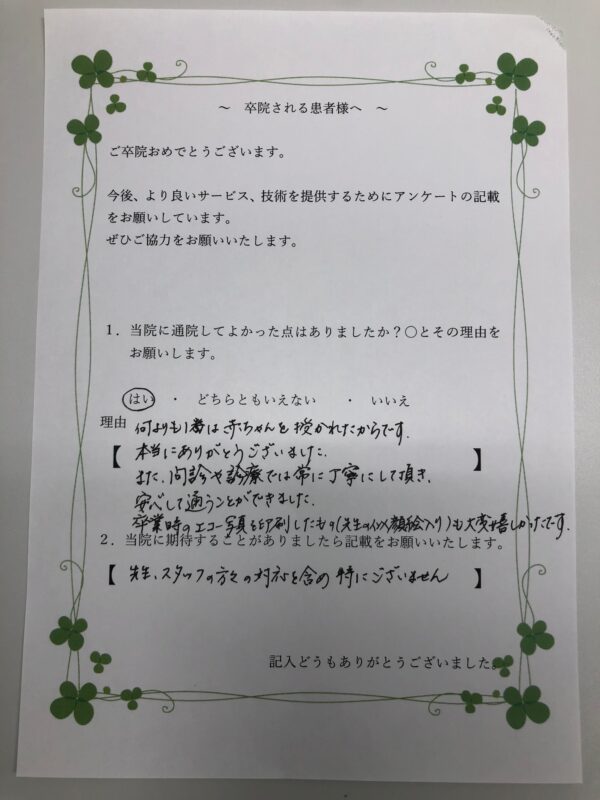 ～ 卒院される患者様へ ～
ご卒院おめでとうございます。
今後、より良いサービス、技術を提供するためにアンケートの記載
をお願いしています。
ぜひご協力をお願いいたします。
1．当院に通院してよかった点はありましたか？〇とその理由を
お願いします。
はい ・ どちらともいえない ・ いいえ
理由 何よりも1番は赤ちゃんを授かれたからです.
【 本当にありがとうございました. 】
また、問診や診療では常に丁寧にして頂き、
安心して通うことができました.
卒業時のエコー写真を印刷したもの(先生の似顔絵入り)も大変嬉しかったです.
2．当院に期待することがありましたら記載をお願いいたします。
【 先生、スタッフの方々の対応を含め特にございません 】
記入どうもありがとうございました。